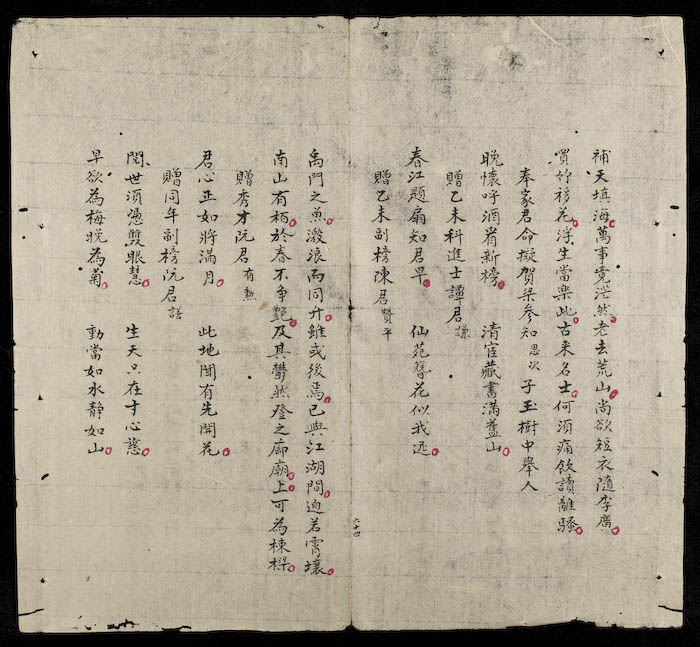 補天填海萬事竟茫然老去荒山尚欲短衣隨李廣
買竹移花浮生當樂此古來名士何須痛飲讀離騷
奉家君命擬賀梁參知思次子玉樹中舉人
晚懷呼酒看新榜 清宦藏書滿舊山
贈乙未科進士譚君謙
春江題扇知君早 仙苑簪花似我遲
贈乙未副榜陳君賢平
禹門之魚激浪而同升雖或後焉已與江湖間迥若霄壤
南山有栢於春不爭艷及其鬱然登之廊廟上可為棟樑
贈秀才阮君有勲
君心正如將滿月 此地閒有先開花
贈同年副榜阮君譜
閱世須憑雙眼慧 生天只在寸心慈
早欲為梅晚為菊 動當如水靜如山
六十四